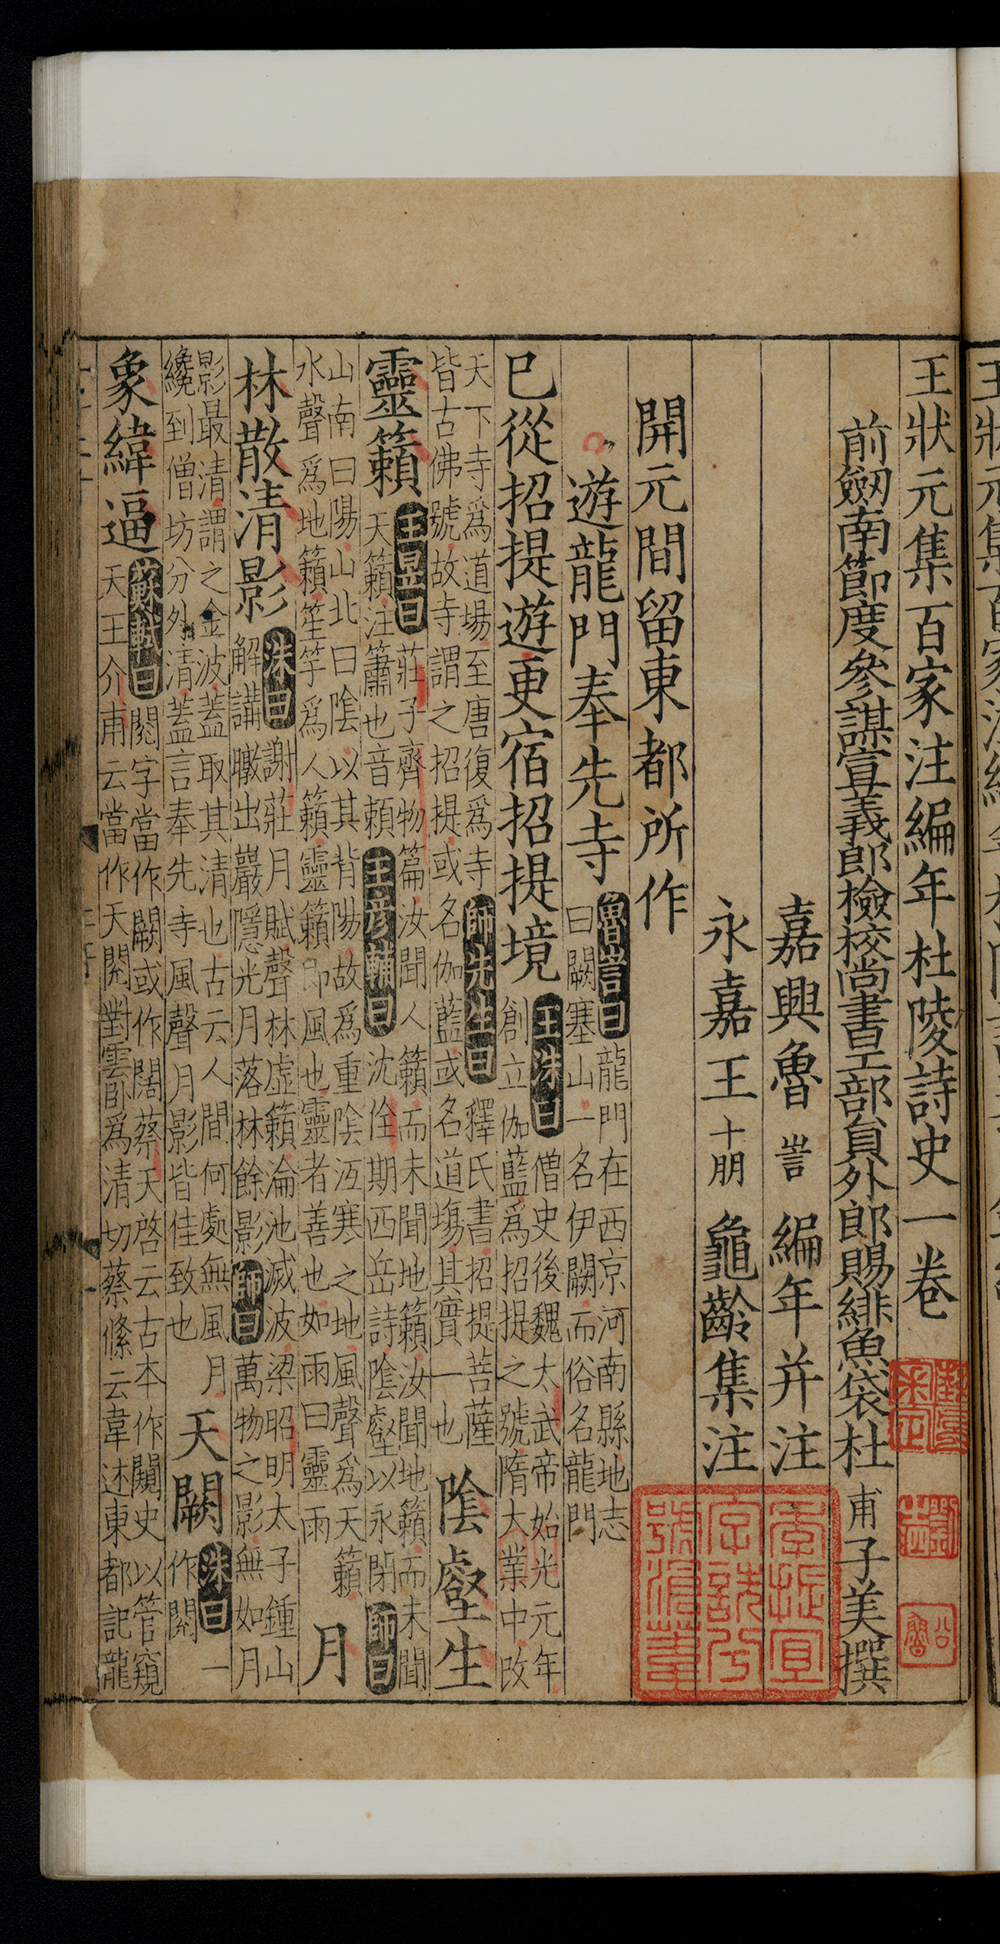 王狀元集百家注編年杜陵詩史一卷
前劔南節度參謀宣義郎檢校尚書工部負外郎賜緋魚袋杜甫子美撰
嘉興魯訔編年并注
永嘉王十朋龜齡集注
開元間留東都所作
遊龍門奉先寺魯訔曰龍門在西京河南縣地志
曰闕塞山一名伊闕而俗名龍門
已從招提遊更宿招提境王洙曰僧史後魏太武帝始光元年
創立伽藍爲招提之號隋大業中改
天下寺爲道場至唐復爲寺師先生曰釋氏書招提菩薩
皆古佛號故寺謂之招提或名伽藍或名道塲其實一也陰壑生
靈籟王晏曰莊子齊物篇汝聞人籟而未聞地籟汝聞地籟而未聞
天籟注簫也音賴王彦輔曰沈佺期西岳詩陰壑以永閉師曰
山南曰陽山北曰陰以其背陽故爲重陰沍寒之地風聲爲天籟
水聲爲地籟笙竽爲人籟靈籟即風也靈者善也如雨曰靈雨月
林散清影洙曰謝莊月賦聲林虛籟淪池滅波梁昭明太子鍾山
解講暾出巖隱光月落林餘影師曰萬物之影無如月
影最清謂之金波蓋取其清也古云人間何處無風月
纔到僧坊分外清蓋言奉先寺風聲月影皆佳致也天闕洙曰一
作閱
象緯逼蘇軾曰閱字當作闕或作闊蔡天啓云古本作闚史以管窺
天王介甫云當作天閱對雲卧爲清切蔡絛云韋述東都記龍